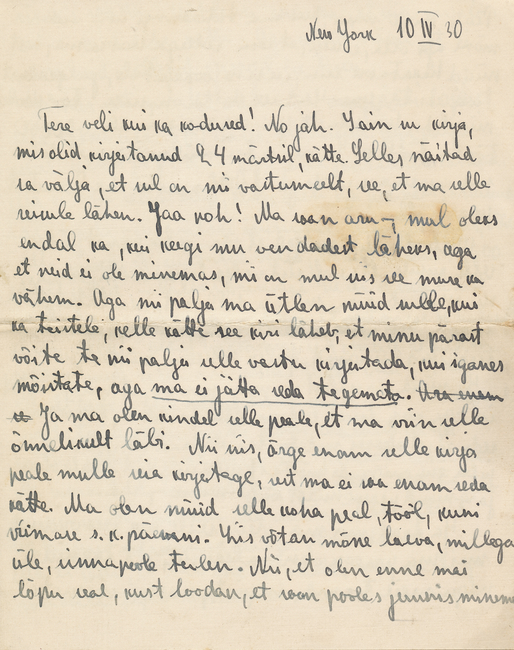 New York 10 IV 30
Tere veli kui ka kodused! No jah. Sain su kirja,
mis olid kirjutanud 24 märtsil, kätte. Selles näitad
sa välja, et sul on nii vastumeelt, see, et ma selle
reisule lähen. Jaa noh! Ma saan aru, mul oleks
endal ka, kui keegi mu vendadest läheks, aga
et neid ei ole minemas, nii on mul siis see mure ka
vähem. Aga nii palju ma ütlen nüüd sulle, kui
ka teistele, kelle kätte see kiri läheb, et minu pärast
võite te nii palju selle vastu kirjutada, kui iganes
mõistate, aga ma ei jätta seda tegemata. Ära enam
Ja ma olen kindel selle peale, et ma viin selle
õnnelikult läbi. Nii siis, ärge enam selle kirja
peale mulle siia kirjutage, sest ma ei saa enam seda
kätte. Ma olen nüüd selle koha peal, tööl, kuni
viimase s. k. päevani. Siis võtan mõne laeva, millega
üle, sinnapoole tulen. Nii, et olen enne mai
lõpu seal, kust loodan, et saan pooles juunis minema